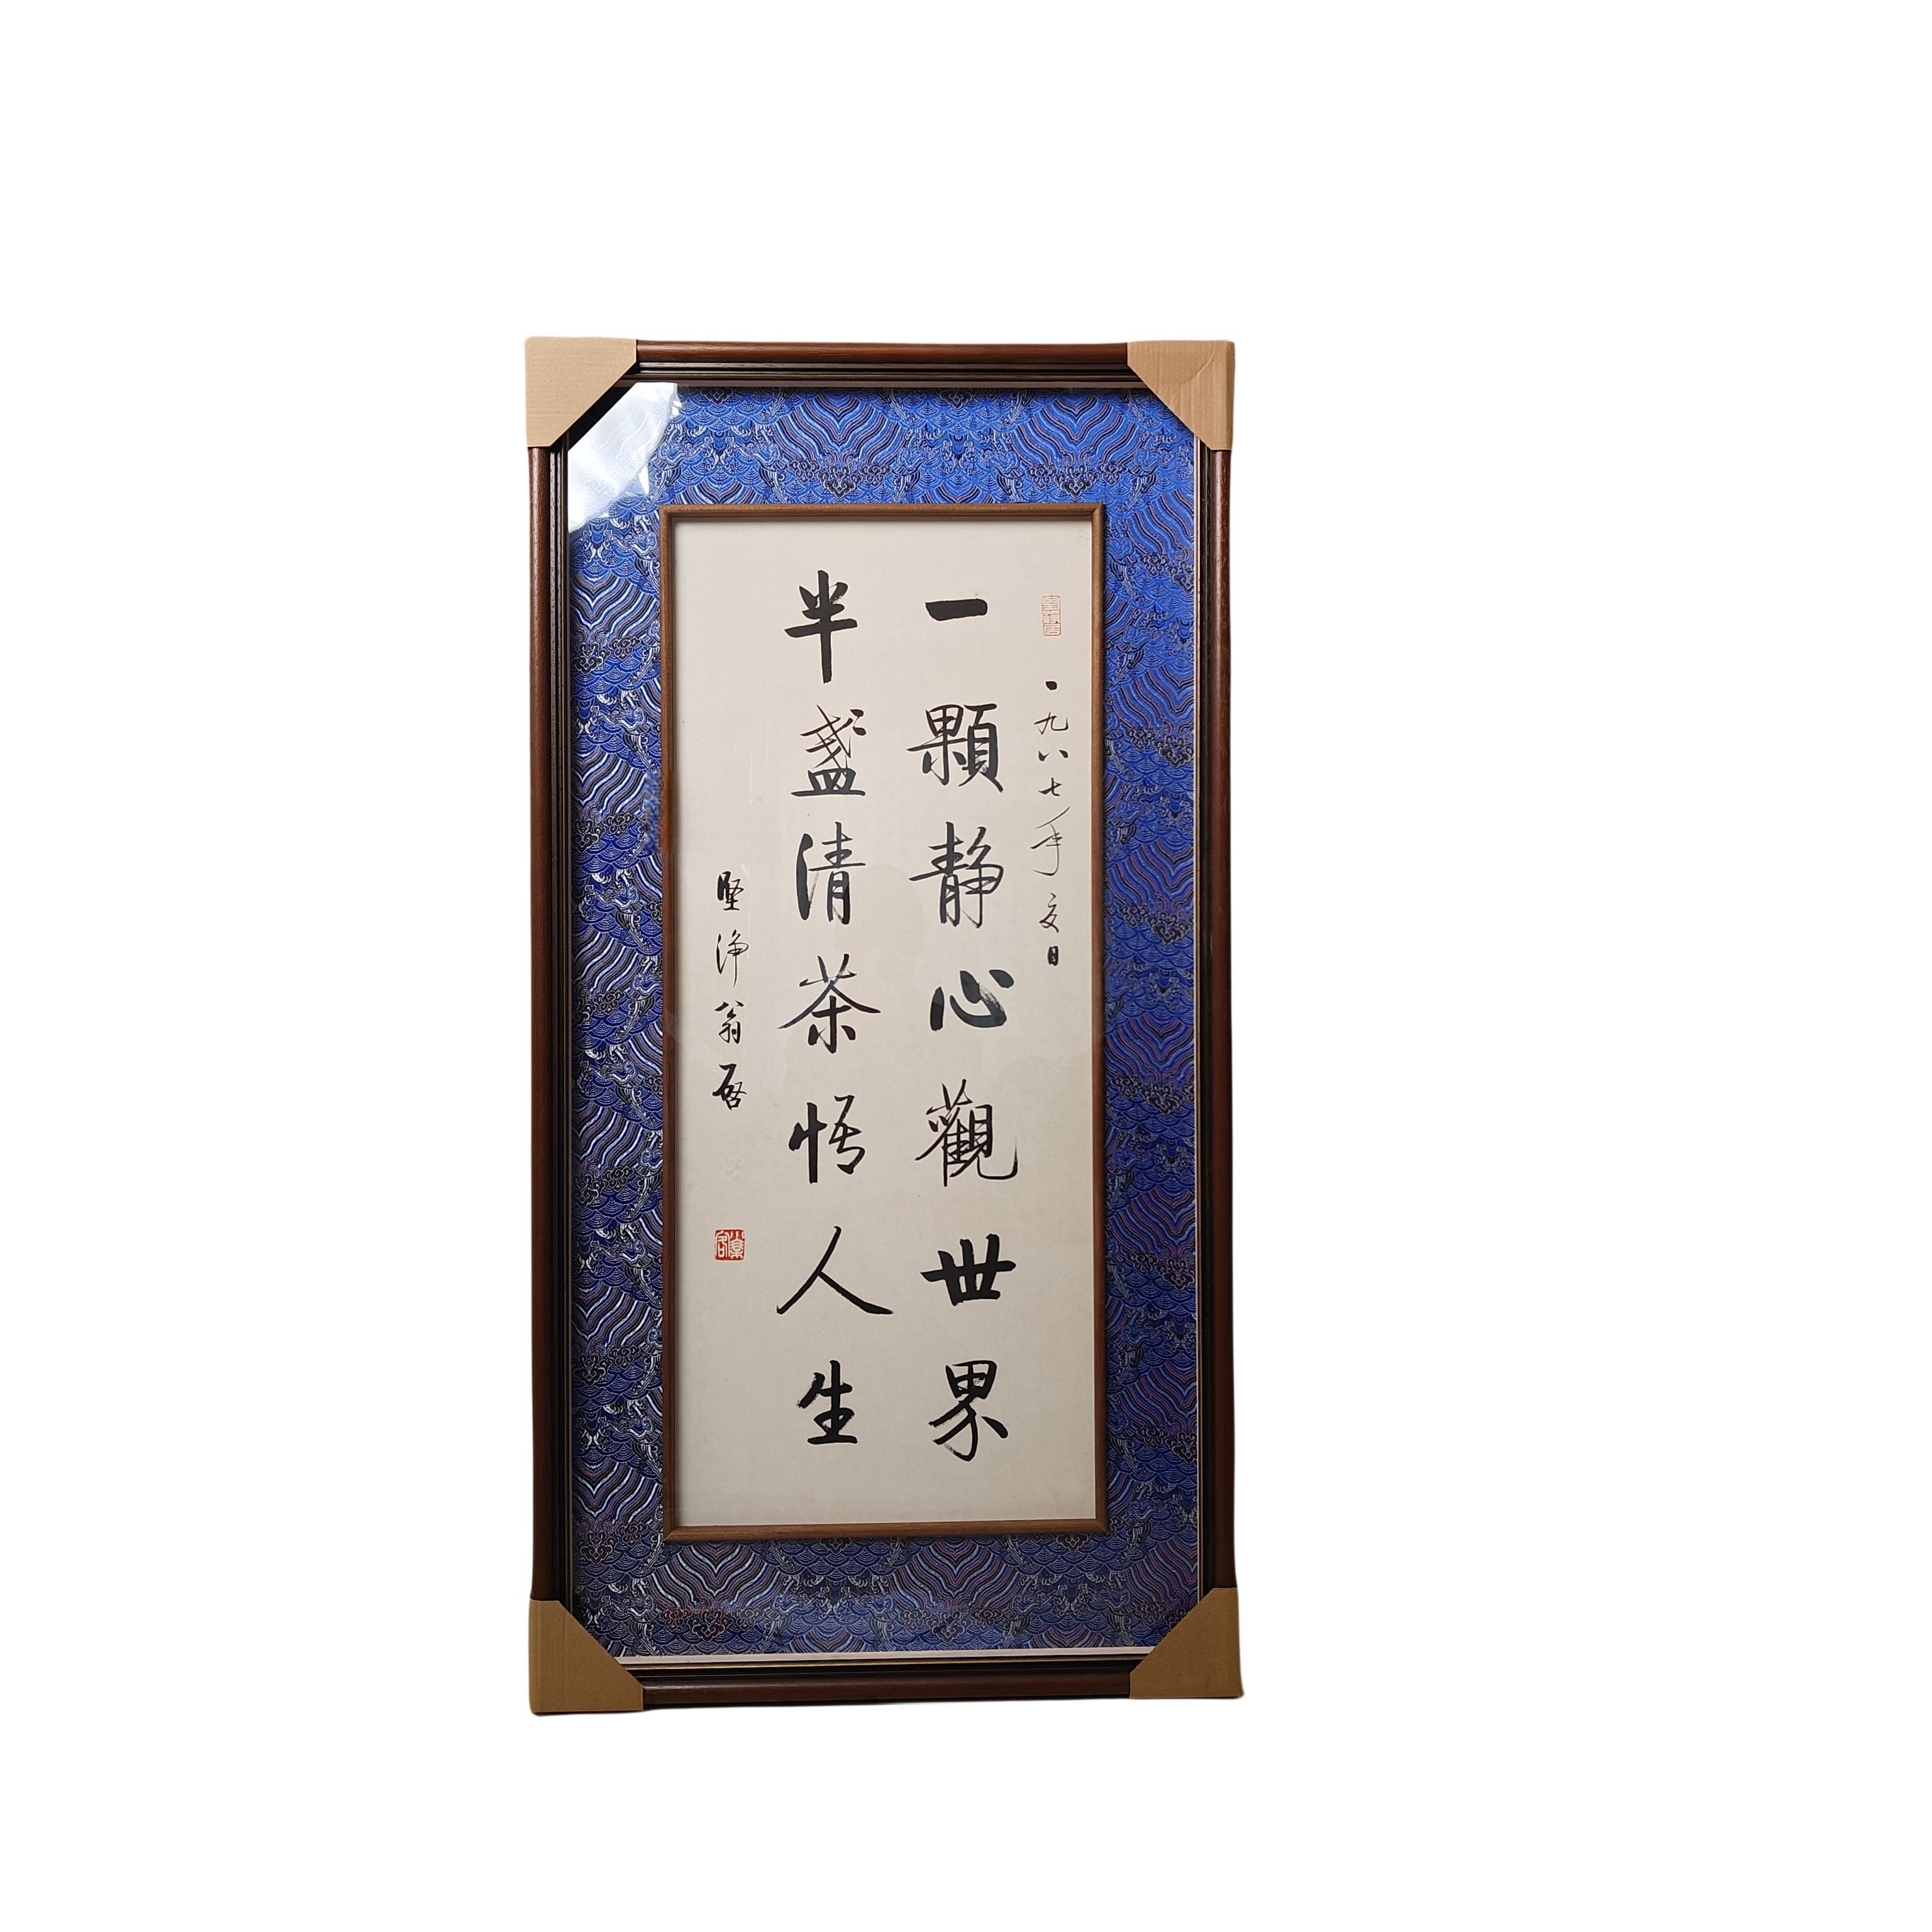 一九八七年夏日
一顆靜心觀世界
半盞清茶悟人生
堅淨翁啓